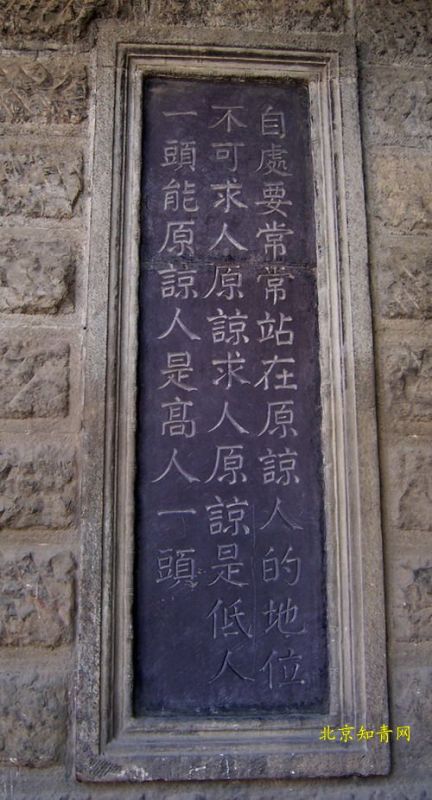 自處要常常站在原諒人的地位
不可求人原諒求人原諒是低人
一頭能原諒人是高人一頭
北京知青网